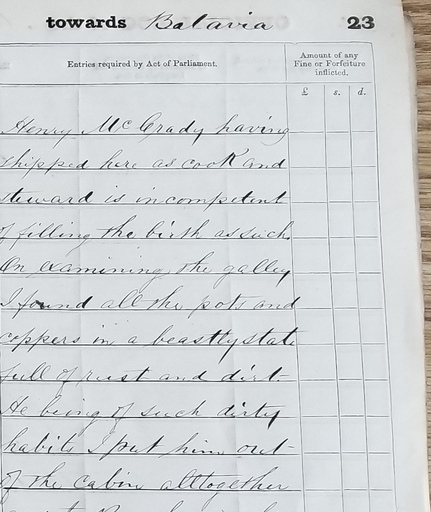 towards Batavia 23
Entries required by Act of Parliament.
Amount of any
Fine or Forfeiture
inflicted.
£ s. d.
Henry McCrady having
shipped here as cook and
steward is incompetent
of filling the birth as such
On examining the galley
I found all the pots and
coppers in a beastly state
full of rust and dirt
He being of such dirty
habits I put him out
of the cabin alltogether